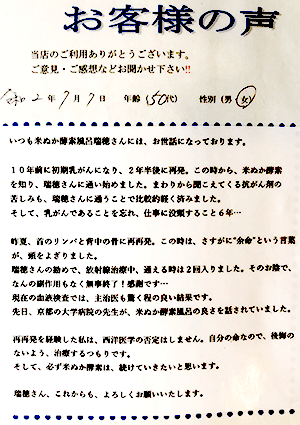 お客様の声
当店のご利用ありがとうございます。
ご意見・ご感想などお聞かせ下さい!!
令和 2年 7月 7日 年齢(50代) 性別(男・女)
いつも米ぬか酵素風呂瑞穂さんには、お世話になっております。
10年前に初期乳がんになり、2年半後に再発。この時から、米ぬか酵素
を知り、瑞穂さんに通い始めました。まわりから聞こえてくる抗がん剤の
苦しみも、瑞穂さんに通うことで比較的軽く済みました。
そして、乳がんであることを忘れ、仕事に没頭すること6年…
昨夏、首のリンパと背中の骨に再再発。この時は、さすがに“余命”という言葉
が、頭をよぎりました。
瑞穂さんの勧めで、放射線治療中、通える時は2回入りました。そのお陰で、
なんの副作用もなく無事終了!感謝です…
現在の血液検査では、主治医も驚く程の良い結果です。
先日、京都の大学病院の先生が、米ぬか酵素風呂の良さを話されていました。
再再発を経験した私は、西洋医学の否定はしません。自分の命なので、後悔の
ないよう、治療するつもりです。
そして、必ず米ぬか酵素は、続けていきたいと思います。
瑞穂さん、これからも、よろしくお願いいたします。